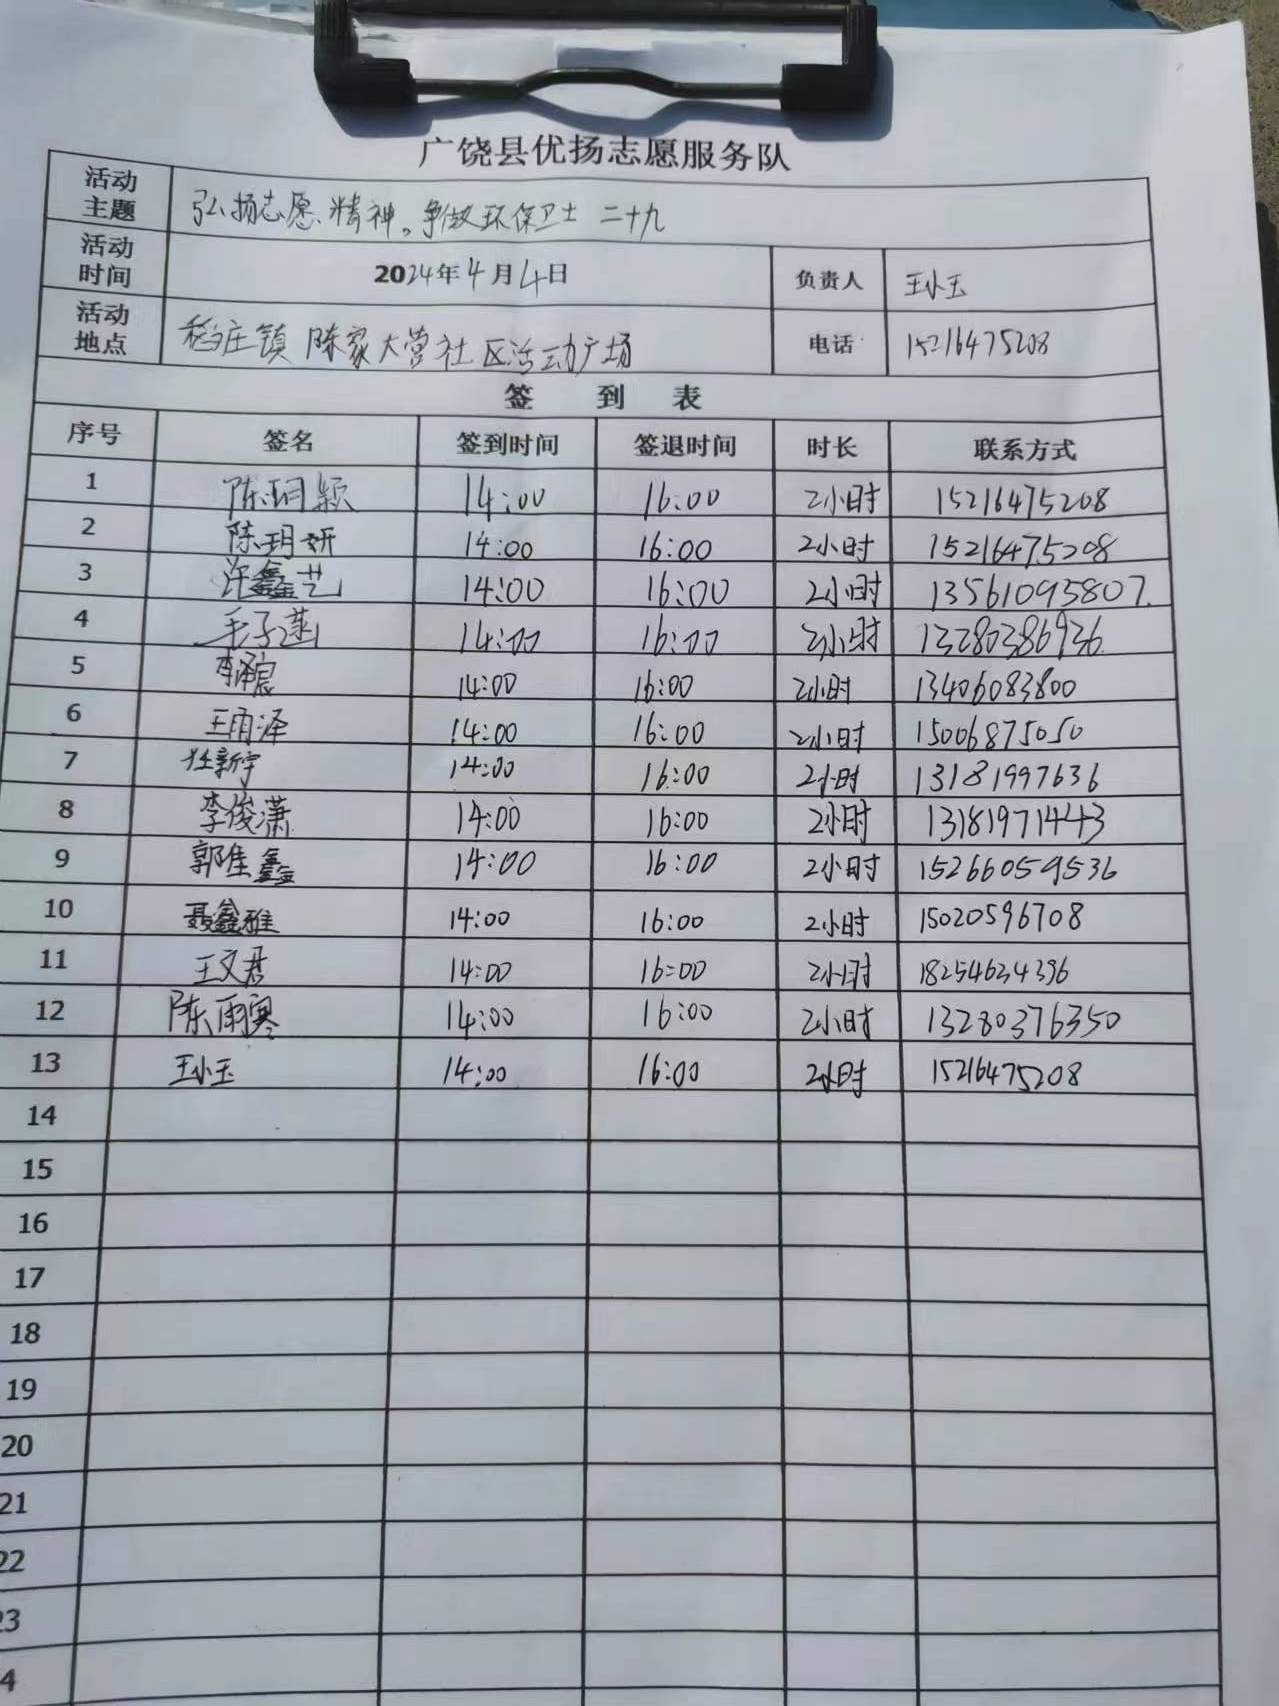 广饶县优扬志愿服务队
活动主题 弘扬志愿精神。争做环保卫士 二十九
活动时间 2024年4月4日 负责人 王小玉
活动地点 稻庄镇 陈家大营社区活动广场 电话 15216475208
签 到 表
序号 签名 签到时间 签退时间 时长 联系方式
1 陈玥颖 14:00 16:00 2小时 15216475208
2 陈玥妍 14:00 16:00 2小时 15216475208
3 许鑫艺 14:00 16:00 2小时 13561095807.
4 毛子菡 14:00 16:00 2小时 13280386936
5 李泽宸 14:00 16:00 2小时 13406083800
6 王雨泽 14:00 16:00 2小时 15006875050
7 任新宇 14:00 16:00 2小时 13181997636
8 李俊潇 14:00 16:00 2小时 13181971443
9 郭佳鑫 14:00 16:00 2小时 15266059536
10 聂鑫雅 14:00 16:00 2小时 15020596708
11 王文君 14:00 16:00 2小时 18254634396
12 陈雨寒 14:00 16:00 2小时 13280376350
13 王小玉 14:00 16:00 2小时 15216475208
14
15
16
17
18
19
20
21
22
23
4